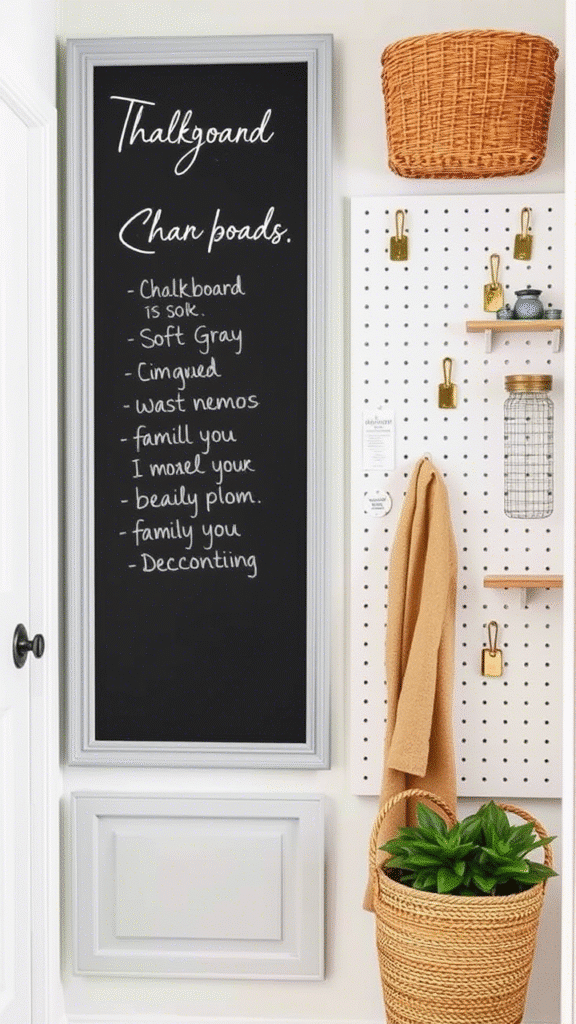 Thalkgoand
Chan poads.
- Chalkboard
is sok.
- Soft Gray
- Cimgued
- wast nemos
- famill you
I moael your
- beaily plom.
- family you
- Deccontiing